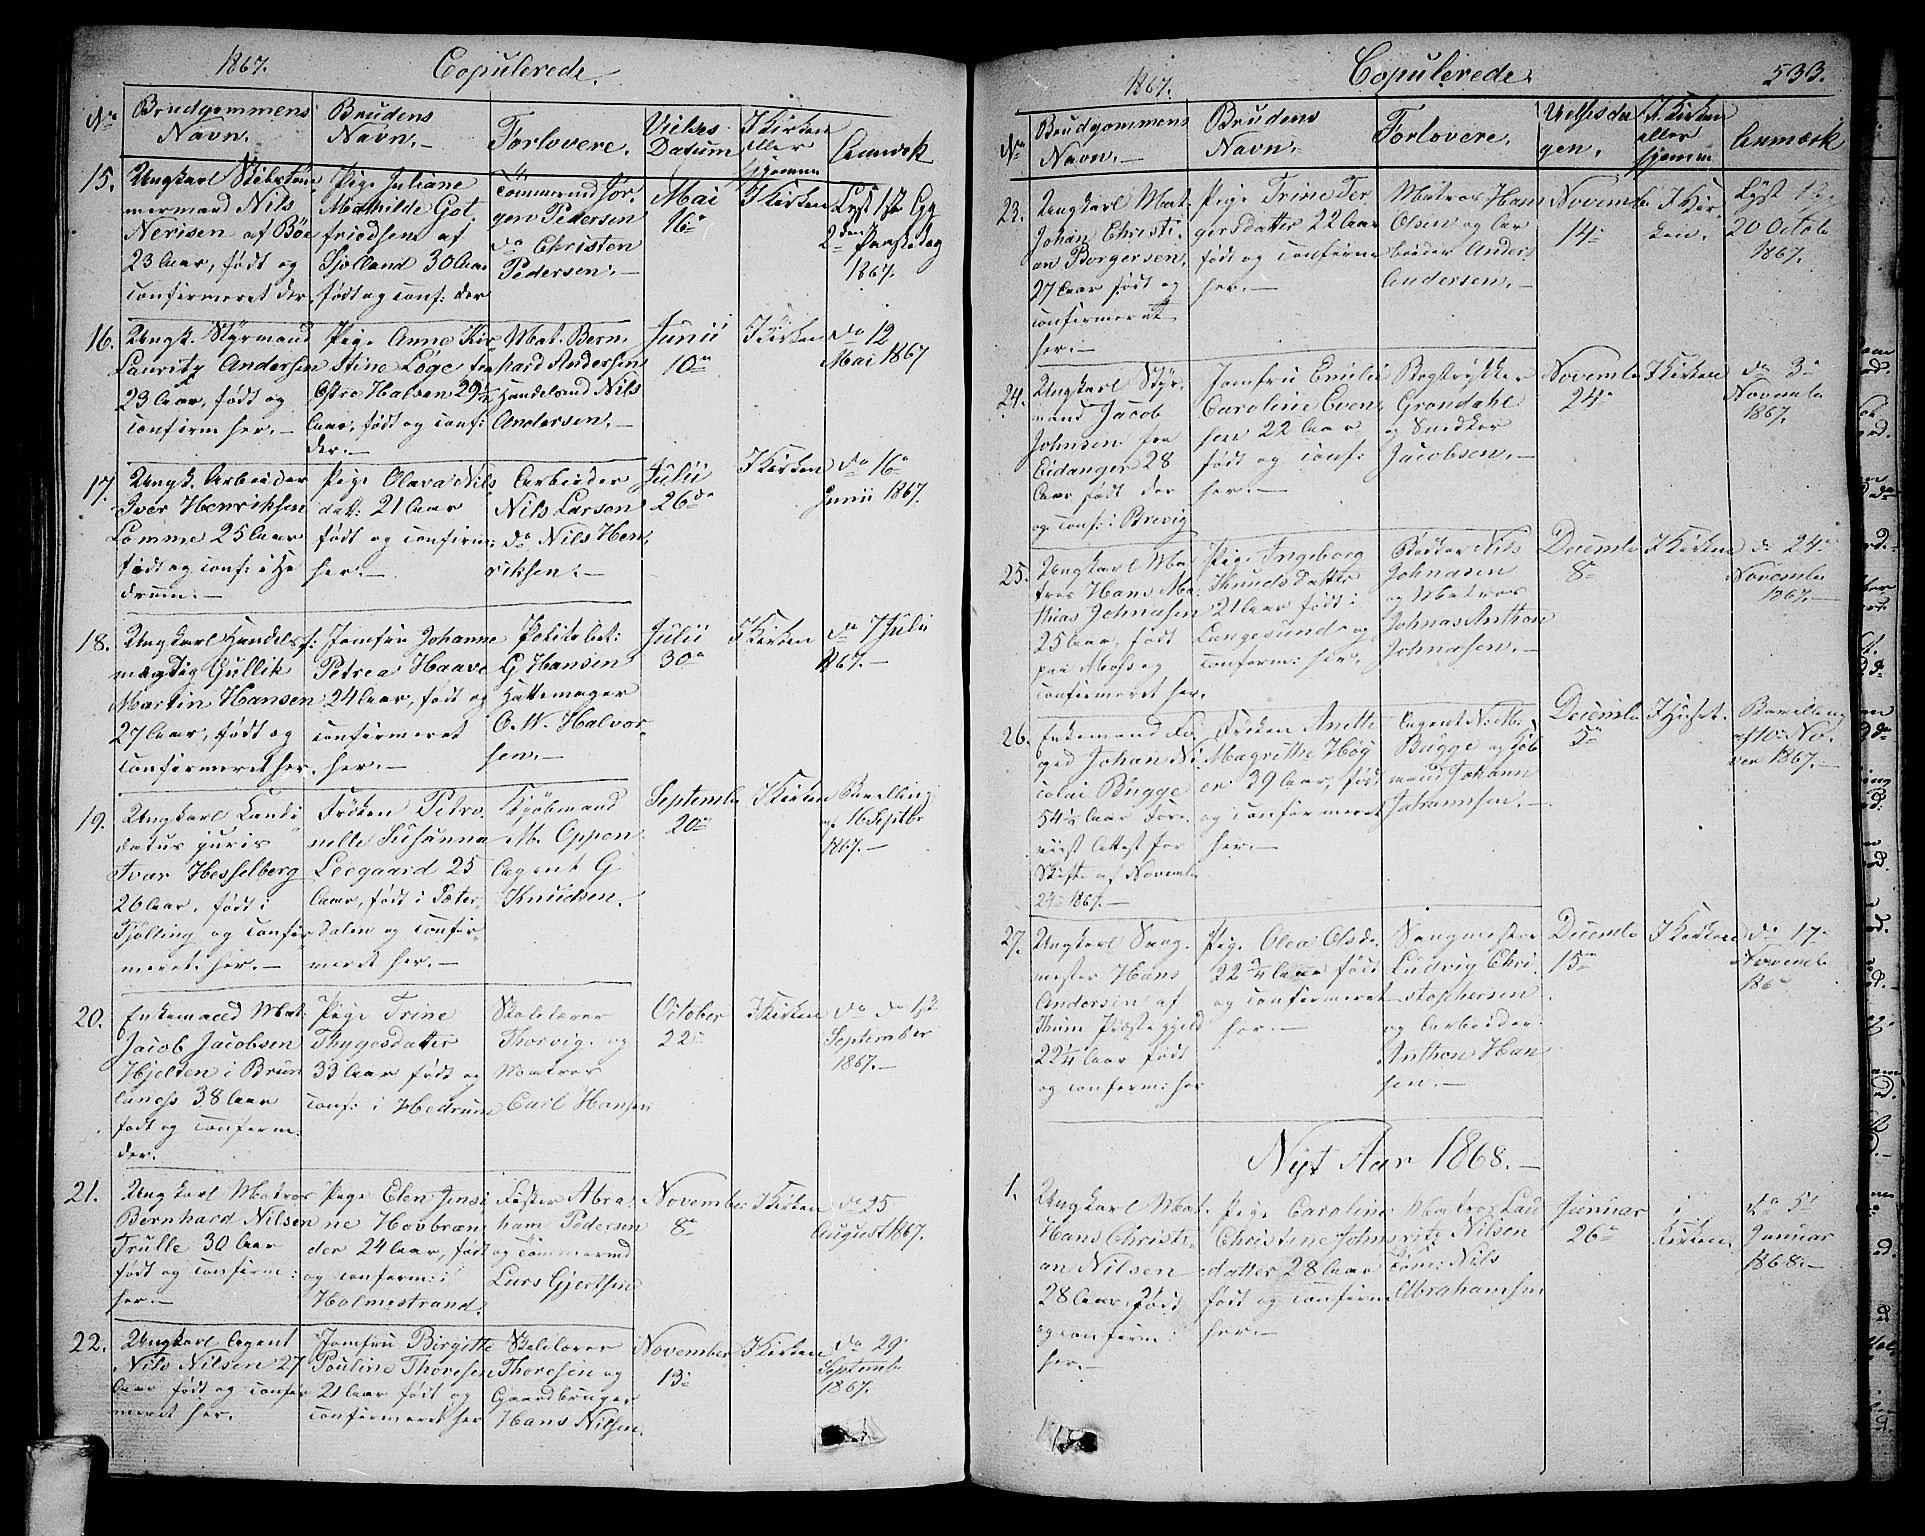 1867. Copulerede.
No
Brudgommens Navn.
Brudens Navn.
Forlovere.
Vielses Datum
I Kirken eller hjemme
Anmærk
15.
Ungkarl Skibstømmermand Nils
Nerisen af Böe
23 Aar, født og
confirmeret der.
Pige Juliane
Mathilde Gotfriedsen af
Sjölland 30 Aar
født og conf: der
Tømmermd Jørgen Pedersen
do Christen
Pedersen.
Mai
16de
I Kirken
Lyst 1ste Gg
2den Paaskedag
1867.
16.
Ungk. Styrmand
Lauritz Andersen
23 Aar, født og
confirm her.
Pige Anne Kirstine Løge fra
Østre Halsen 29½
Aar, født og conf:
der.
Mat. Bernhard Andersen
Handelsmd Nils
Andersen.
Junii
10de
I Kirken
do 12
Mai 1867
17.
Ungk. Arbeider
Iver Henriksen
Lomme 25 Aar
født og conf: i Hedrum.
Pige Olava Nilsdatt: 21 Aar
født og confirm:
her.
Arbeider
Nils Larsen
do Nils Henriksen.
Julii
26de
I Kirken
do 16de
Junii 1867.
18.
Ungkarl Handelsfuldmægtig Gullik
Martin Hansen
27 Aar, født og
confirmeret her.
Jomfru Johanne
Petrea Haave
24 Aar, født og
confirmeret
her.
Politibet:
G Hansen
Hattemager
O. W. Halvorsen.
Julii
30de
I Kirken
do 7 Julii
1867.
19.
Ungkarl Candidatus juris
Ivar Hesselberg
26 Aar, født i
Tjölling og confirmeret her.
Frøken Petronelle Susanna
Leegaard 25
Aar, født i Sæterdalen og confirmeret her.
Kjøbmand
M. Oppen
Agent G
Knudsen.
Septembr
20de
I Kirken
Bevilling
af 16 Septbr
1867.
20.
Enkemand Mat.
Jacob Jacobsen
Hjelten i Brunlanæss 38 Aar
født og confirm:
der.
Pige Trine
Thygesdatter
33 Aar født og
conf: i Hedrum
Skolelærer
Thorvig og
Matros
Carl Hansen
October
22de
I Kirken
do do 12
September
1867.
21.
Ungkarl Matros
Bernhard Nilsen
Trulle 30 Aar
født og confirm:
her.
Pige Elen Jensine Hovbrænder 24 Aar, født
og confirm: i
Holmestrand.
Fisker Abraham Pedersen
og Tømmermd
Lars Gjertsen
November
8de
I Kirken
do 25
August 1867.
22.
Ungkarl Agent
Nils Nilsen 27
Aar født og confirmeret her.
Jomfru Birgitte
Pauline Thoresen
21 Aar født og
confirmeret her
Skolelærer
Thoresen og
Gaardbruger
Hans Nilsen.
November
13de
I Kirken
do 29
Septembr
1867.
1867. Copulerede. 533.
No
Brudgommens
Navn.
Brudens
Navn.
Forlovere.
Vielsesdagen.
I Kirken
eller
hjemme
Anmærk
23.
Ungkarl Mat.
Johan Christian Borgersen.
27 Aar født og
confirmeret
her.
Pige Trine Torgersdatter 22 Aar
født og confirme
her.
Matros Hans
Olsen og Arbeider Anders
Andersen.
Novembr
14de
I Kirken.
Lyst 1ste Gg
20 Octob
1867.
24.
Ungkarl Styrmand Jacob
Johnsen fra
Eidanger 28
Aar født der
og conf: i Brevig
Jomfru Emilie
Caroline Evensen 22 Aar
født og conf:
her.
Bogtrykker
Grøndahl
og Snedker
Jacobsen.
Novembr
24de
I Kirken
do 3de
Novembr
1867.
25.
Ungkarl Matros Hans Mathias Johnasen
25 Aar, født
paa Moss og
confirmeret her.
Pige Ingeborg
Knudsdatter
21 Aar født i
Langesund og
confirm: her.
Bødker Nils
Johnasen
og Matros
Johnas Anthon
Johnasen.
Decembr
8de
I Kirken
do 24de
Novembr
1867.
26.
Enkemand Foged Johan Nicolai Bugge
54½ Aar Forevist Attest for
Skifte af Novembr
24de 1867.
Frøken Anette
Magrethe Høyer 39 Aar, født
og confirmeret
her.
Agent N: M:
Bugge og Kjøbmand Johann
Johannsen.
Decembr
5de
I Huset.
Bevilling
af 10de November 1867.
27.
Ungkarl Sangmester Hans
Andersen af
Thum Præstegjeld
22¼ Aar født
og confirm: her
Pige Olea Olsda.
22¾ Aar født
og confirmeret
her.
Sangmester
Ludvig Christophersen
og Arbeider
Anthon Hansen.
Decembr
15de
I Kirken
do 17de
Novembr
Nyt Aar 1868.
1.
Ungkarl Mat.
Hans Christian Nilsen
28 Aar, født
og confirm:
her.
Pige Caroline
Christine Johnsdatter 28 Aar
født og confirm
her.
Matros Lauritz Nilsen
Töm: Nils
Abrahamsen
Januar
26de
i
Kirken.
do 5te
Januar
1868.